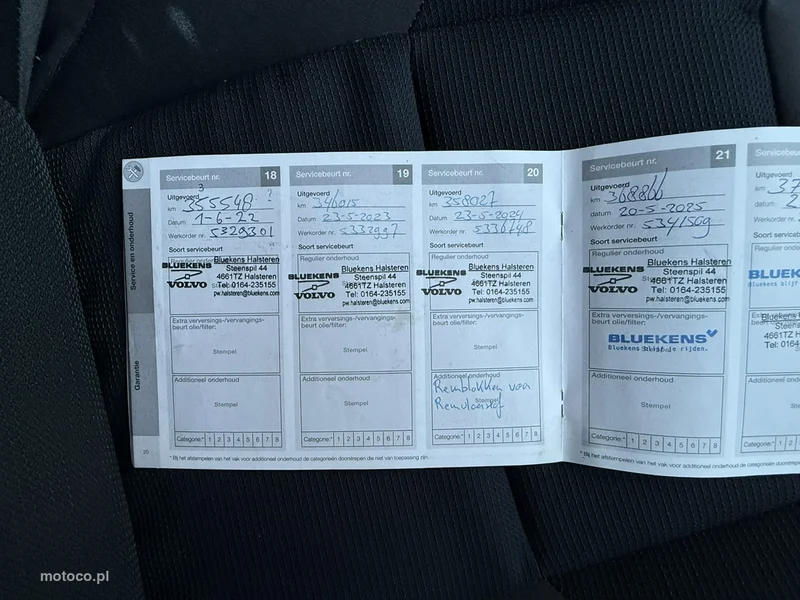 Service en onderhoud
Garantie
20
Servicebeurt nr. 18
Uitgevoerd
3
km 355548 ?
Datum 1-6-22
Werkorder nr. 5329301
Soort servicebeurt
Regulier onderhoud
Bluekens Halsteren
BLUEKENS
Steenspil 44
4661TZ Halsteren
VOLVO
Tel: 0164-235155
pw.halsteren@bluekens.com
Extra verversings-/vervangings-
beurt olie/filter:
Stempel
Additioneel onderhoud
Stempel
Categorie:* 1 2 3 4 5 6 7 8
Servicebeurt nr. 19
Uitgevoerd
km 346015
Datum 23-5-2023
Werkorder nr. 5332997
Soort servicebeurt
Regulier onderhoud
Bluekens Halsteren
BLUEKENS
Steenspil 44
4661TZ Halsteren
VOLVO
Tel: 0164-235155
pw.halsteren@bluekens.com
Extra verversings-/vervangings-
beurt olie/filter:
Stempel
Additioneel onderhoud
Stempel
Categorie:* 1 2 3 4 5 6 7 8
Servicebeurt nr. 20
Uitgevoerd
km 358027
Datum 23-5-2024
Werkorder nr. 5336748
Soort servicebeurt
Regulier onderhoud
Bluekens Halsteren
BLUEKENS
Steenspil 44
4661TZ Halsteren
VOLVO
Tel: 0164-235155
pw.halsteren@bluekens.com
Extra verversings-/vervangings-
beurt olie/filter:
Stempel
Additioneel onderhoud
Remblokken voor
Stempel
Remvloeistof
Categorie:* 1 2 3 4 5 6 7 8
* Bij het afstempelen van het vak voor additioneel onderhoud de categorieën doorstrepen die niet van toepassing zijn.
Servicebeurt nr. 21
Uitgevoerd
km 368866
datum 20-5-2025
Werkorder nr. 5341509
Soort servicebeurt
Regulier onderhoud
Bluekens Halsteren
BLUEKENS
Steenspil 44
4661TZ Halsteren
VOLVO
Tel: 0164-235155
pw.halsteren@bluekens.com
Extra verversings-/vervangings-
beurt olie/filter:
BLUEKENS
Bluekens blijf je rijden.
Additioneel onderhoud
Stempel
Categorie:* 1 2 3 4 5 6 7 8
* Bij het afstempelen van het vak voor additioneel onderhoud de categorieën doorstrepen
Servicebeurt nr.
Uitgevoerd
km 37
datum 2
Werkorder nr.
Soort servicebeurt
Regulier onderhoud
BLUEK
Bluekens blijf
Extra
Bluekens
Steens
4661TZ H
Tel: 0164
Additioneel on
Categorie:* 1
* Bij het
motoco.pl